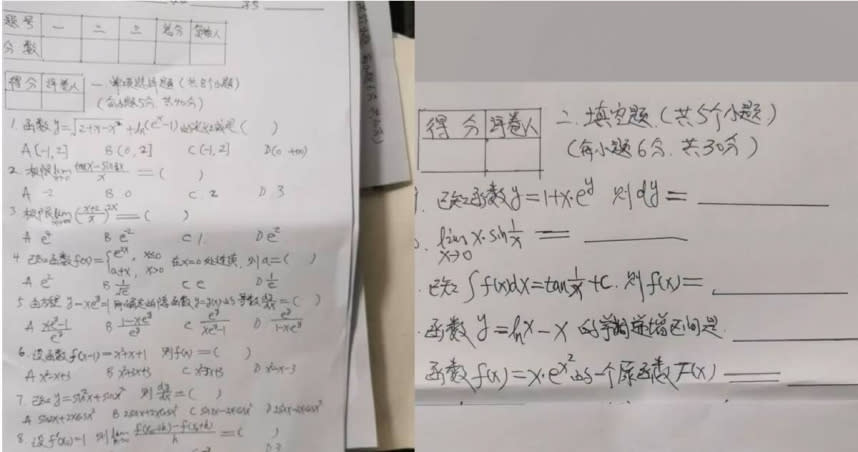 题号 一 二 三 总分 签卷人
分数
得分 评卷人
一、单项选择题(共8个小题)
(每小题5分,共40分)
1.函数y=√(2+x-x²)+ln(e^x-1)的定义域是( )
A(-1,2] B.(0,2] C(-1,2] D(0 +∞)
2.极限lim = ( )
A -2 B.0 C.2 D.3
3.极限lim(x+2/x)^2x=( )
A e⁴ B e² C 1 D e²
4.已知函数f(x)={e^2x, x≤0 a+x, x>0 在x=0处连续,则a=( )
A e² B 1/√e C e D 1/e
5.由方程 y-xe^y=1所确定的隐函数y=y(x)的导数dy/dx=( )
A (xe^y-1)/e^y B (1-xe^y)/e^y C e^y/(xe^y-1) D e^y/(1-xe^y)
6.设函数f(x-1)=x²+x+1 则f(x)=( )
A x²-x+3 B x²+3x+3 D x²-x-3
7.已知y=sin²x+sinx² 则dy/dx=( )
A sin2x+2xcosx² B 2sinx+2xcosx² C sin2x-2xcosx² D 2sinx-2xcosx²
8.设f'(x₀)=1 则lim = ( )
得分 评卷人
二.填空题.(共5个小题)
(每小题6分.共30分)
.已知函数y=1+x·e^y 则dy=
.lim x→0 x·sin1/x =
.已知∫f(x)dx=tan1/x+C.则f(x)=
.函数y=lnx-x的单调递增区间是
函数f(x)=x·e^x²的一个原函数F(x)